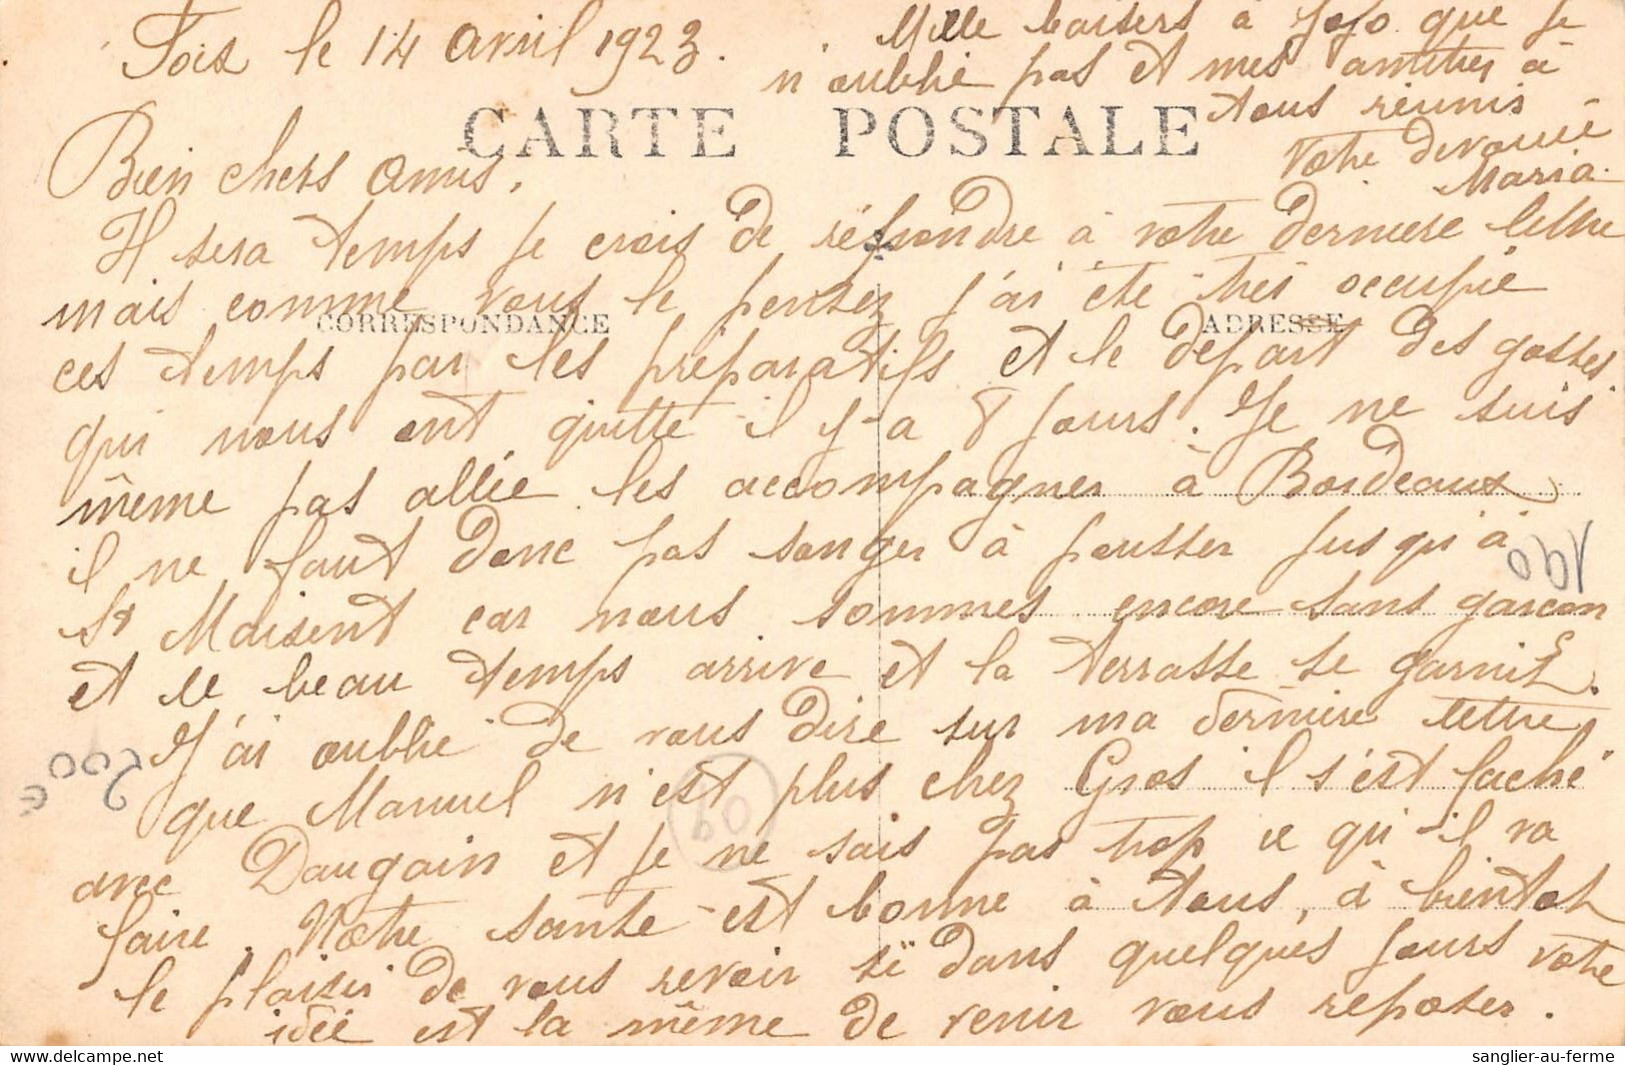 Foix le 14 avril 1923.
Bien chers amis,
Il sera temps je crois de répondre à votre derniere lettre
mais comme vous le pensez j'ai été très occupée
ces temps par les préparatifs et le départ des gosses
qui nous ont quitté il y-a 8 jours. Je ne suis
même pas allée les accompagner à Bordeaux
il ne faut donc pas songer à pousser jusqu'à
St Maixent car nous sommes encore sans garçon
et le beau temps arrive et la terrasse se garnit.
J'ai oublié de vous dire sur ma dernière lettre
que Manuel n'est plus chez Gros il s'est faché
avec Daugain et je ne sais pas trop ce qu'il va
faire. Notre santé est bonne à tous, à bientot
le plaisir de vous revoir si dans quelques jours votre
idée est la même de venir vous reposer.
Mille baisers à Jojo que je
n'oublie pas et mes amitiés à
tous réunis
Votre devouée
Maria.
CARTE POSTALE
CORRESPONDANCE
ADRESSE
190
200 €
90
sanglier-au-ferme